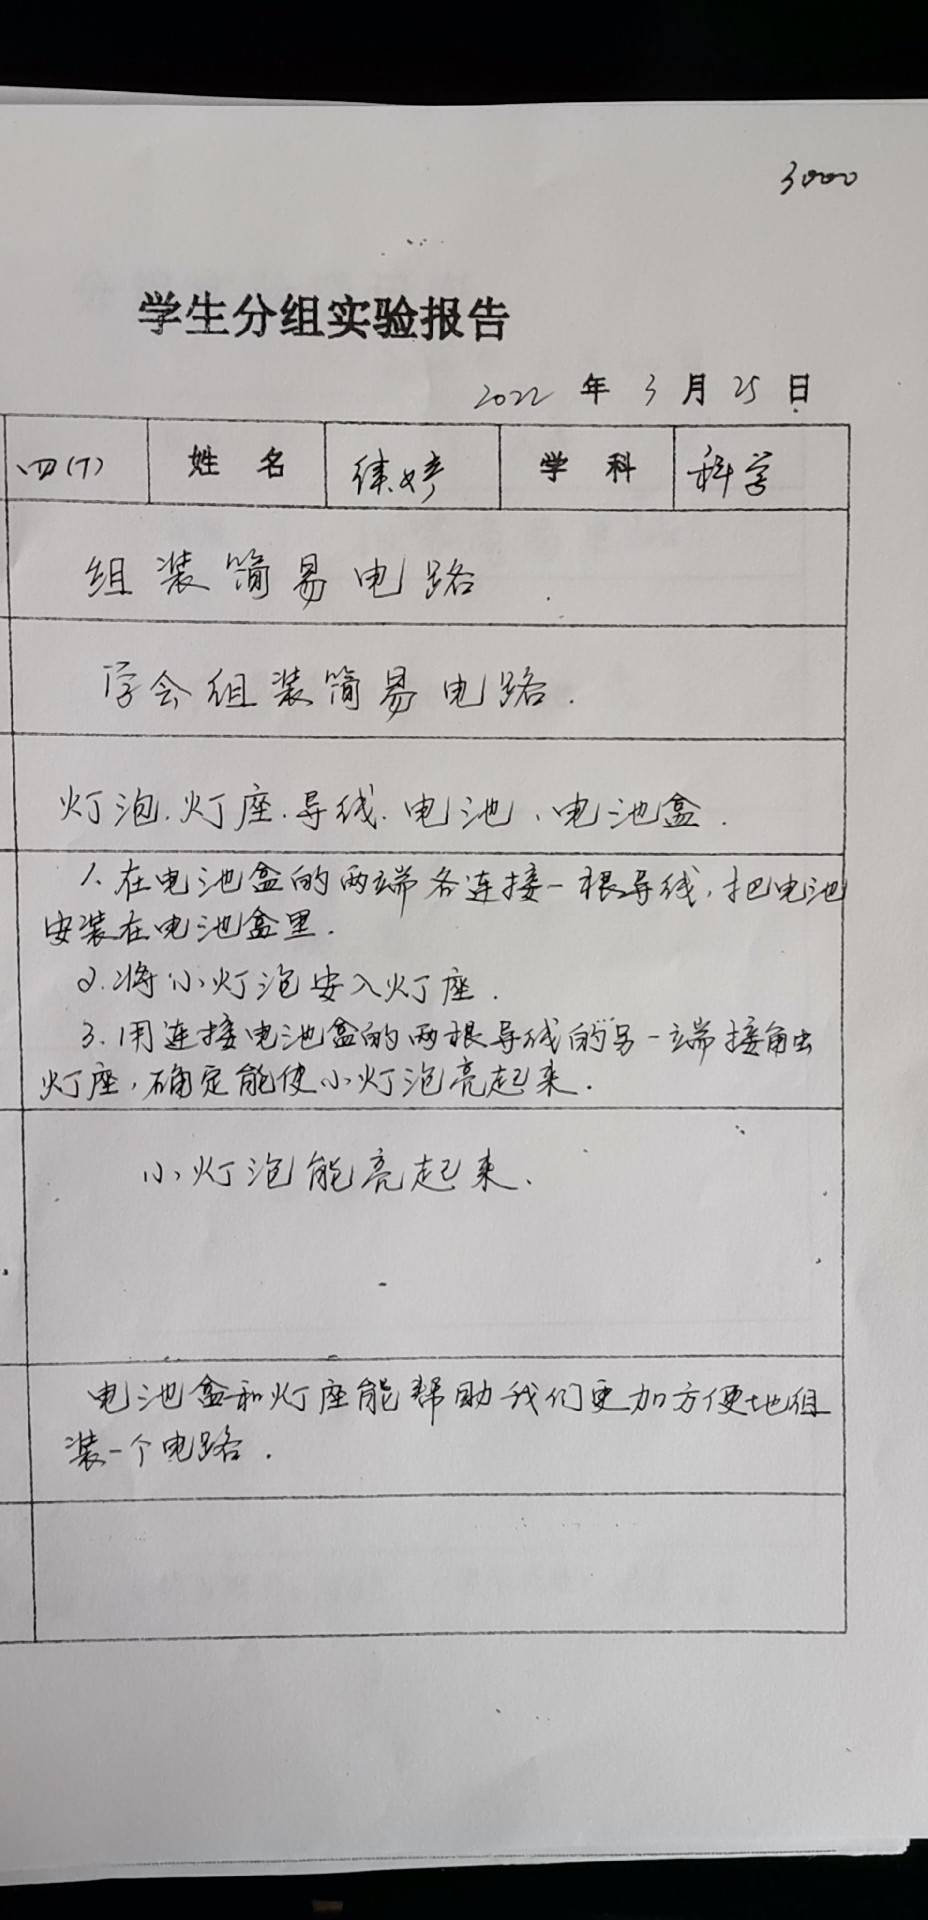 3000
学生分组实验报告
2022 年 3 月 25 日
四(7) 姓 名 婷 学 科 科学
组装简易电路
学会组装简易电路.
灯泡.灯座.导线.电池、电池盒.
1.在电池盒的两端各连接一根导线,把电池
安装在电池盒里.
2.将小灯泡安入灯座.
3.用连接电池盒的两根导线的另一端接触
灯座,确定能使小灯泡亮起来.
小灯泡能亮起来.
电池盒和灯座能帮助我们更加方便地组
装一个电路.